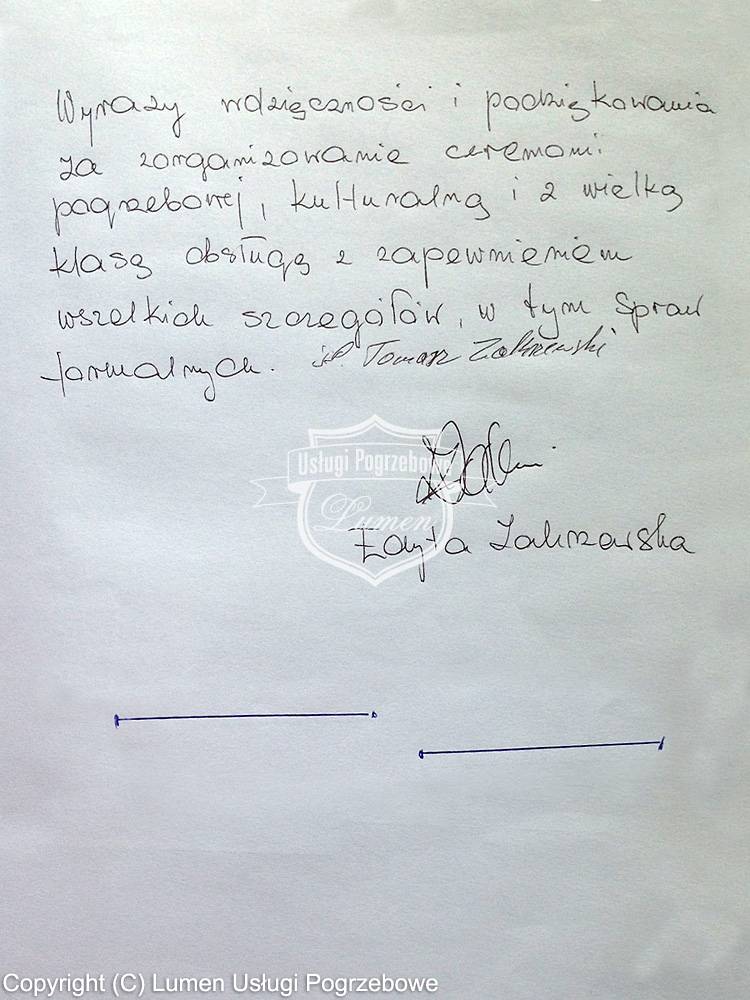 Wyrazy wdzięczności i podziękowania
za zorganizowanie ceremonii
pogrzebowej, kulturalną i z wielką
klasą obsługę z zapewnieniem
wszelkich szczegółów, w tym spraw
formalnych. śp. Tomasz Zakrzewski
Usługi Pogrzebowe
Lumen
Edyta Zakrzewska
Copyright (C) Lumen Usługi Pogrzebowe